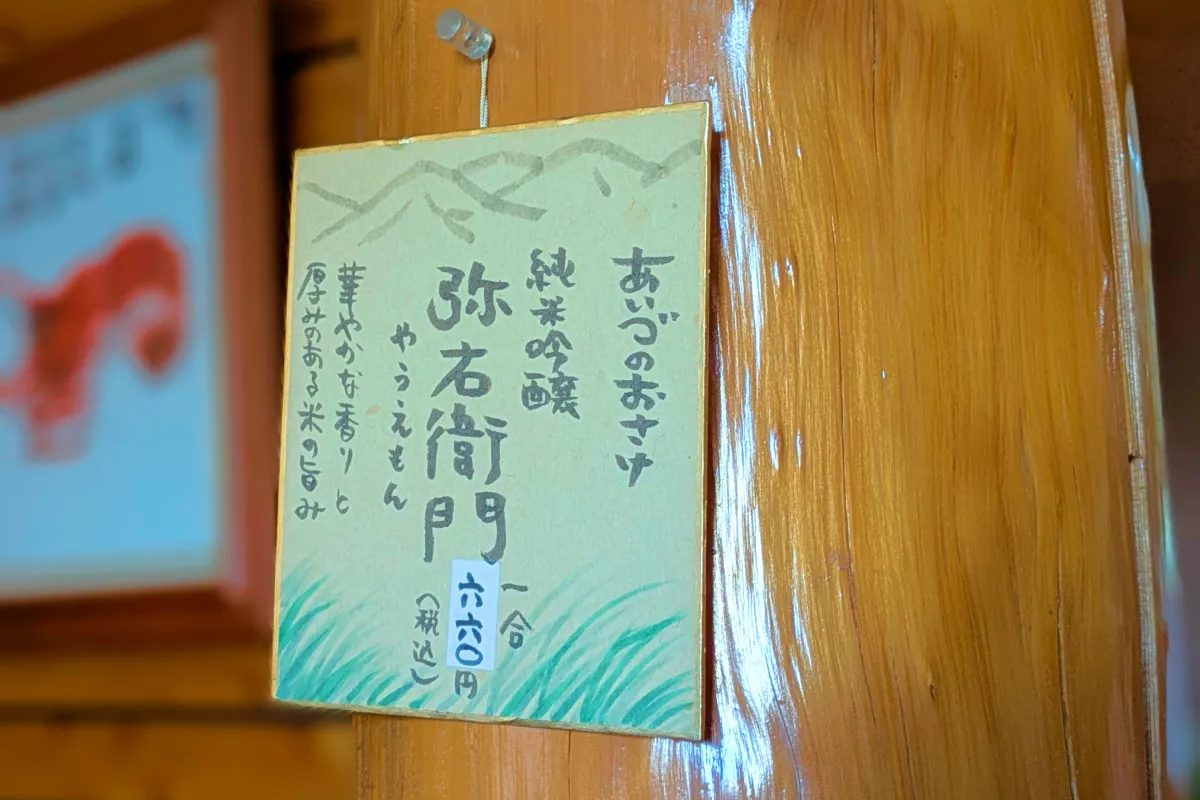 あいづのおさけ
純米吟醸
弥右衛門
やうえもん
一合
六六〇円
(税込)
華やかな香りと
厚みのある米の旨み